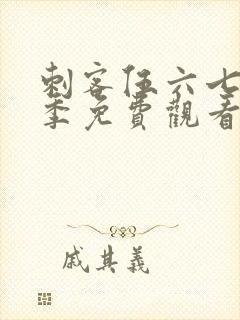 刺客伍六七
季免費觀看
戚其義